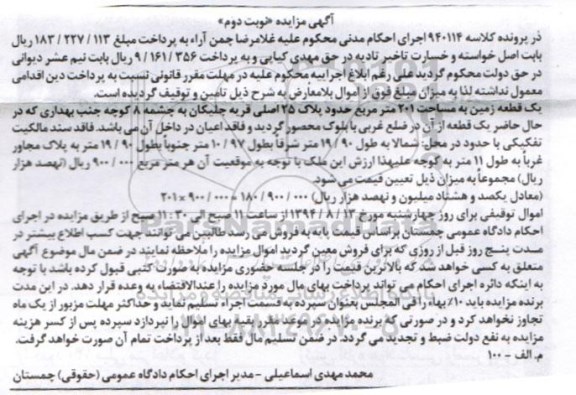 آگهی مزایده «نوبت دوم»
در پرونده کلاسه ۹۴۰۱۱۴ اجرای احکام مدنی محکوم علیه غلامرضا چمن آراء به پرداخت مبلغ ۱۱۳ / ۲۲۷ / ۱۸۳ ریال
بابت اصل خواسته و خسارت تاخیر تادیه در حق مهدی کیایی و به پرداخت ۳۵۶ / ۱۶۱ / ۹ ریال بابت نیم عشر دیوانی
در حق دولت محکوم گردید علی رغم ابلاغ اجراییه محکوم علیه در مهلت مقرر قانونی نسبت به پرداخت دین اقدامی
معمول نداشته لذا به میزان مبلغ فوق از اموال بلامعارض به شرح ذیل تأمین و توقیف گردیده است.
یک قطعه زمین به مساحت ۲۰۱ متر مربع حدود پلاک ۲۵ اصلی قریه جلیکان به چشمه ۸ کوچه جنب بهداری که در
حال حاضر یک قطعه از آن در ضلع غربی با بلوک محصور گردید و فاقد اعیان در داخل آن می باشد. فاقد سند مالکیت
تفکیکی با حدود در محل: شمالا به طول ۹۰ / ۱۹ متر شرقاً بطول ۹۷ / ۱۰ متر جنوباً بطول ۹۰ / ۱۹ متر به پلاک مجاور
غرباً به طول ۱۱ متر به کوچه علیهذا ارزش این ملک با توجه به موقعیت آن هر متر مربع ۰۰۰ / ۹۰۰ ریال (نهصد هزار
ریال) مجموعاً به میزان ذیل تعیین قیمت می شود.
(معادل یکصد و هشتاد میلیون و نهصد هزار ریال) ۰۰۰ / ۹۰۰ / ۱۸۰ = ۰۰۰ / ۹۰۰ × ۲۰۱
اموال توقیفی برای روز چهارشنبه مورخ ۱۳ / ۸ / ۱۳۹۴ از ساعت ۱۱ صبح الی ۳۰ : ۱۱ صبح از طریق مزایده در اجرای
احکام دادگاه عمومی چمستان براساس قیمت پایه به فروش می رسد طالبین می توانند جهت کسب اطلاع بیشتر در
مدت پنج روز قبل از روزی که برای فروش معین گردید اموال مزایده را ملاحظه نمایند در ضمن مال موضوع آگهی
متعلق به کسی خواهد شد که بالاترین قیمت را در جلسه حضوری مزایده به صورت کتبی قبول کرده باشد با توجه
به اینکه دائره اجرای احکام می تواند پرداخت بهای مال مورد مزایده را عندالاقتضاء به وعده قرار دهد. در این مدت
برنده مزایده باید ۱۰٪ بهاء را فی المجلس بعنوان سپرده به قسمت اجراء تسلیم نماید و حداکثر مهلت مزبور از یک ماه
تجاوز نخواهد کرد و در صورتی که برنده مزایده در موعد مقرر بقیه بهای اموال را نپردازد سپرده پس از کسر هزینه
مزایده به نفع دولت ضبط و تجدید می گردد. در ضمن تسلیم مال فقط بعد از پرداخت تمام آن صورت خواهد گرفت.
م. الف - ۱۰۰
محمد مهدی اسماعیلی - مدیر اجرای احکام دادگاه عمومی (حقوقی) چمستان